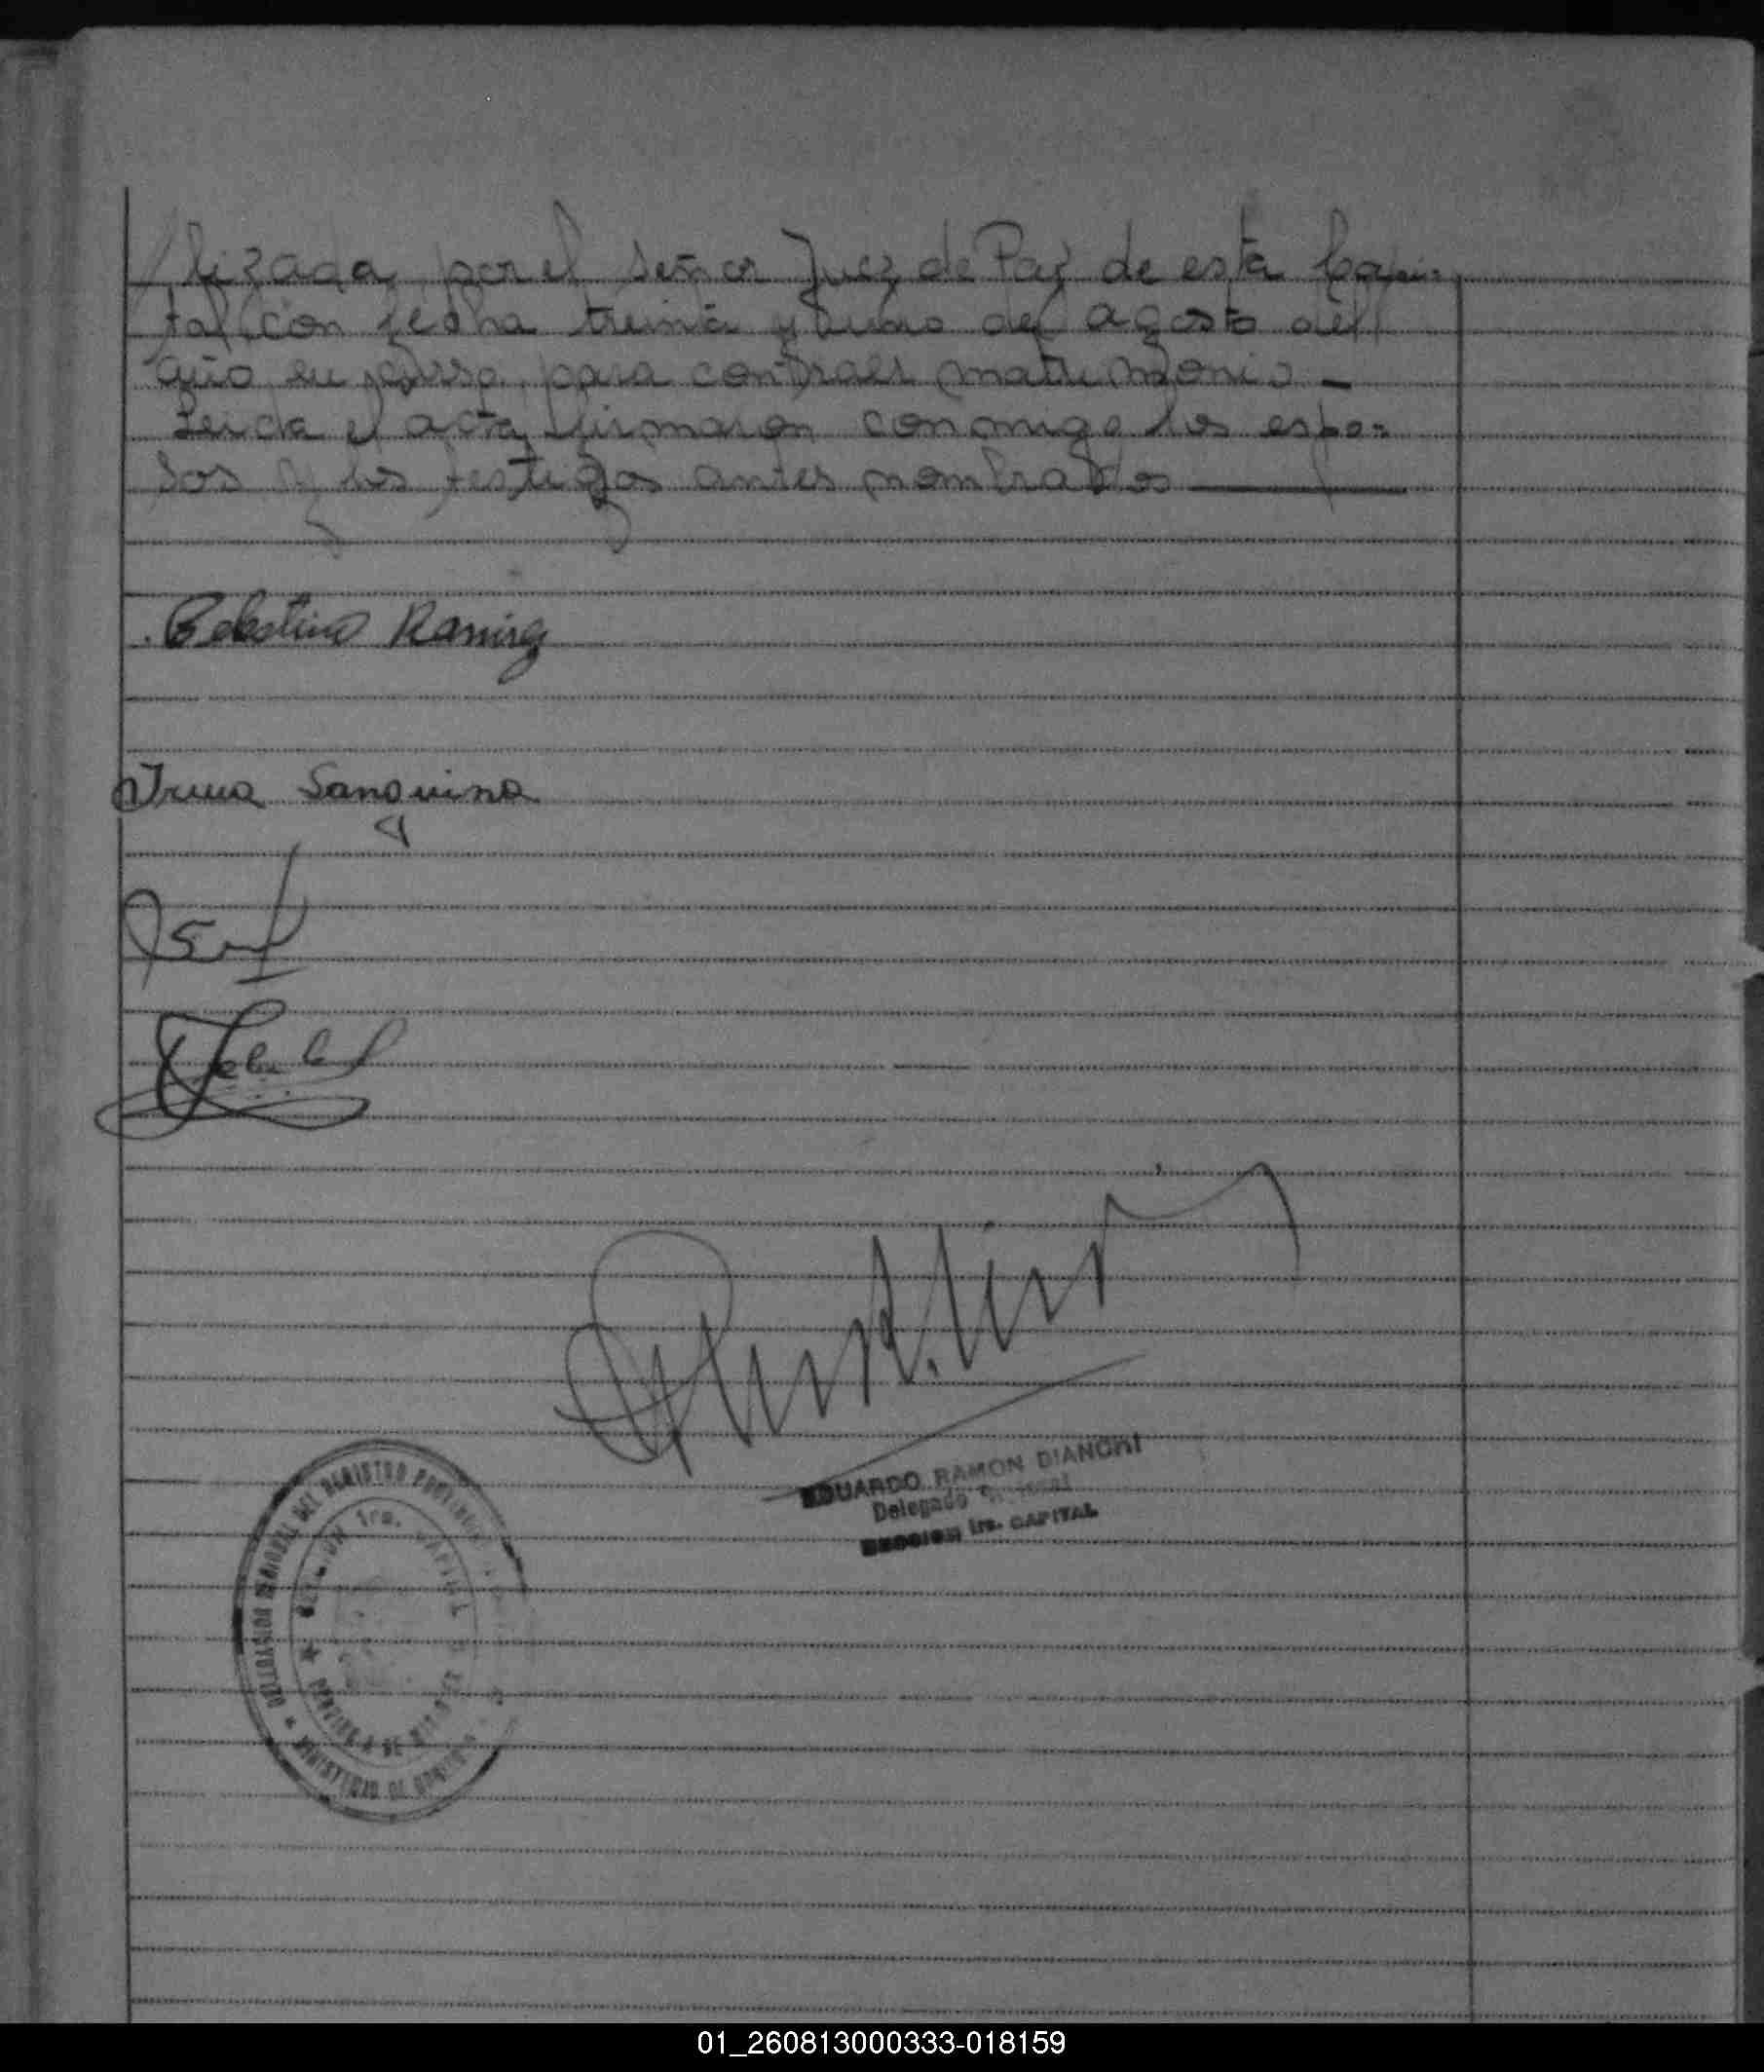 lizada por el señor Juez de Paz de esta Capi=
tal con fecha treinta y uno de agosto del
año en curso, para contraer matrimonio –
Leida el acta firmaron conmigo los espo=
sos y los testigos antes nombrados
Celestino Ramirez
Irma Sanquina
EDUARDO RAMON BIANCHI
Delegado
SECCION 1ra. CAPITAL
DELEGACION DEL REGISTRO
1ra. CAPITAL
MINISTERIO DE
01_260813000333-018159